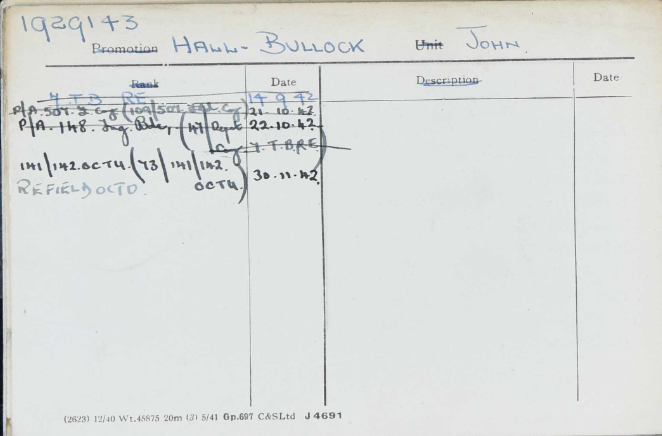 1929143
Promotion HALL-BULLOCK Unit JOHN.
Rank Date Description Date
7. T.B RE 14 9 42
P/A. 507. F Coy (109/507 Coy) 21. 10. 42
P/A. 148. Trg. Bde, (47/Depot 22.10.42
Coy 7. T.B.RE)
141/142.OCTU. (73/141/142. OCTU.) 30.11.42
RE FIELD OCTD.
(2623) 12/40 Wt.45875 20m (3) 5/41 Gp.697 C&SLtd J4691